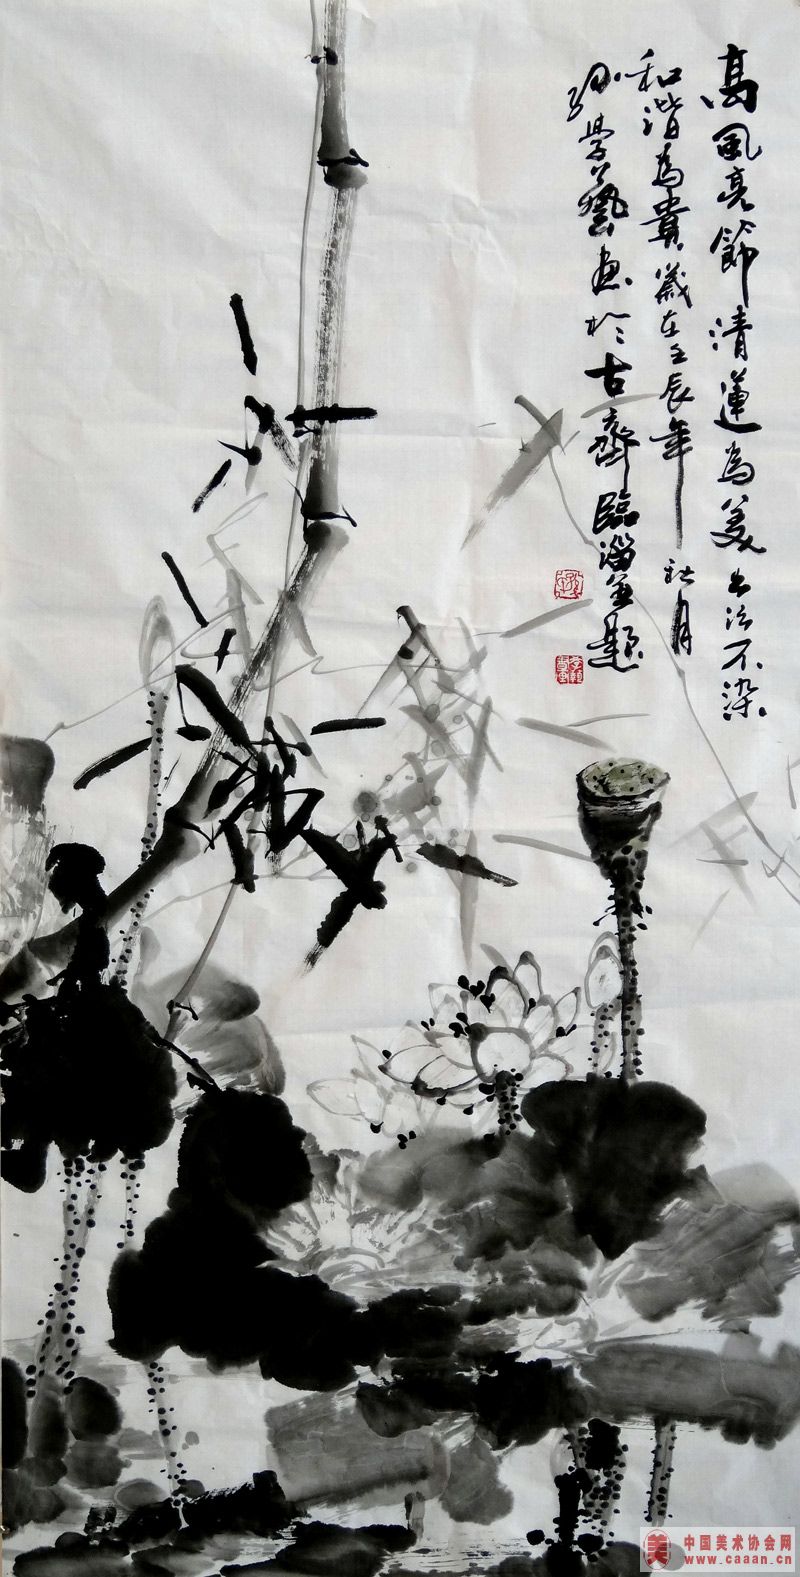 高風亮節清蓮為美出污不染
和谐為貴歲在壬辰年秋月
學藝畫於古齊臨淄並題
中国美术协会网
www.caaan.cn